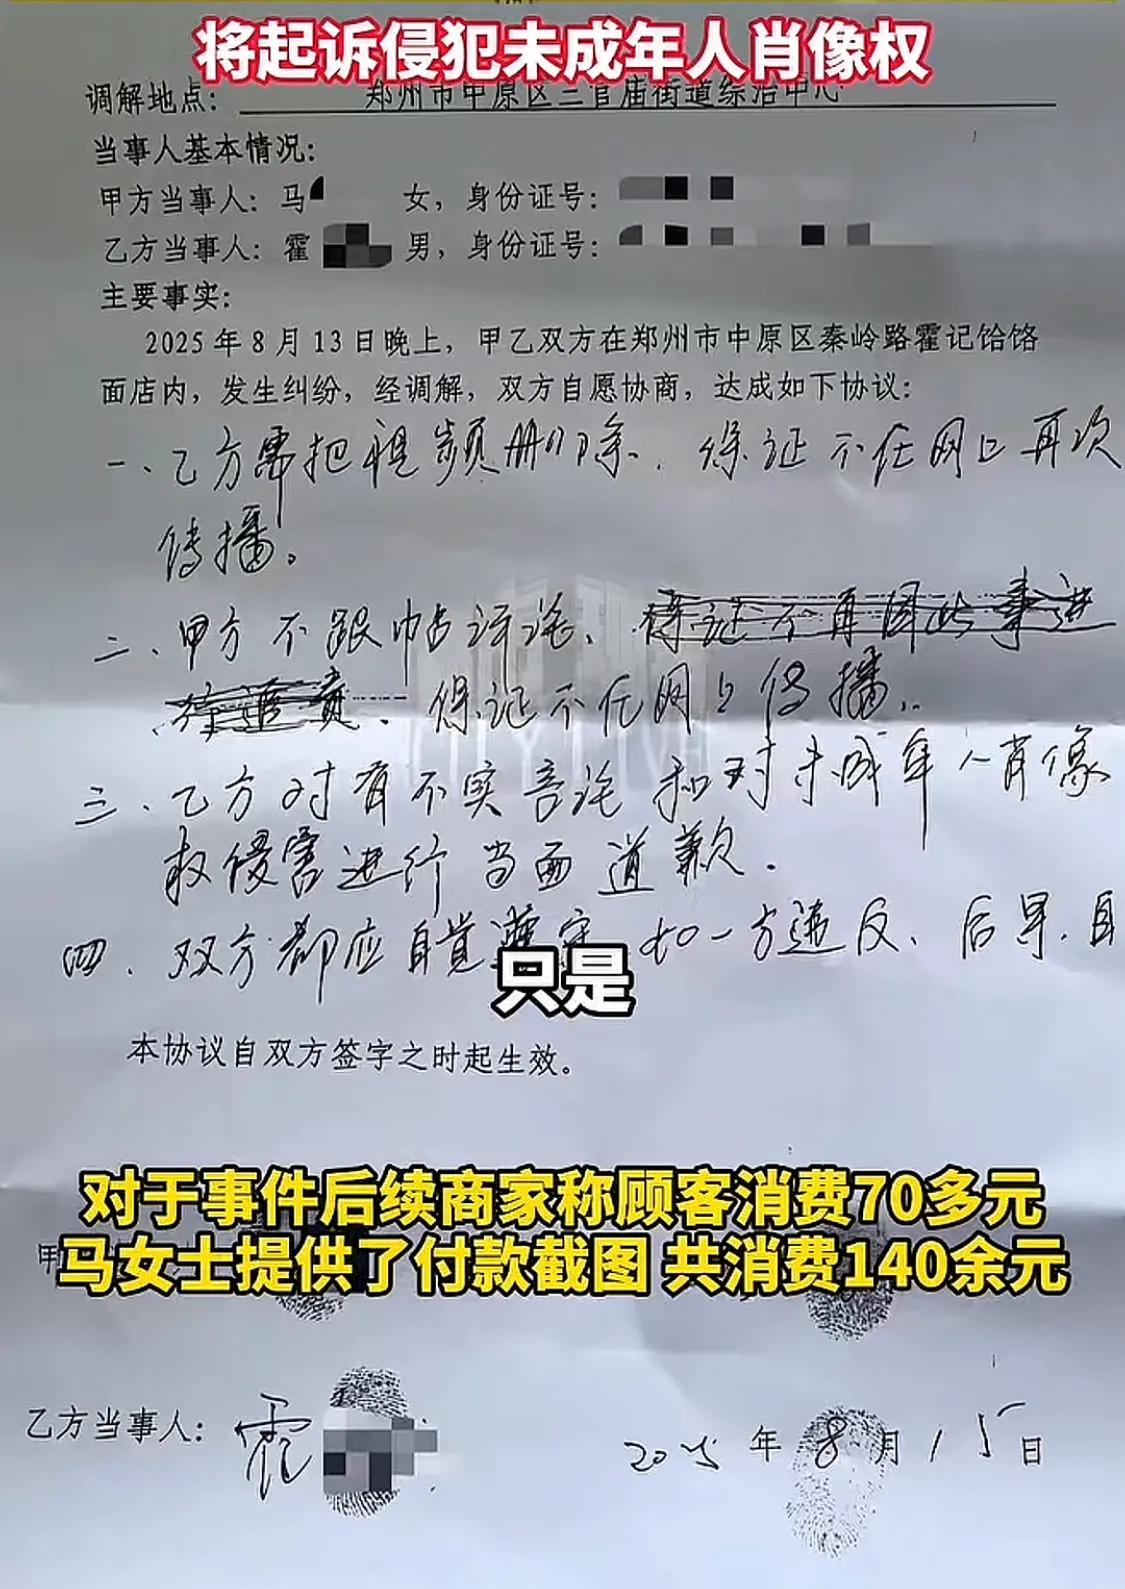 将起诉侵犯未成年人肖像权
调解地点: 郑州市中原区三官庙街道综治中心
当事人基本情况:
甲方当事人: 马 女, 身份证号:
乙方当事人: 霍 男, 身份证号:
主要事实:
2025年8月13日晚上, 甲乙双方在郑州市中原区秦岭路霍记饸饹
面店内, 发生纠纷, 经调解, 双方自愿协商, 达成如下协议:
一、乙方需把视频删除. 保证不在网上再次
传播。
二、甲方不跟帖评论、保证不再因此事进
行追责. 保证不在网上传播.
三、乙方对有不实言论和对未成年人肖像
权侵害进行当面道歉.
四、双方都应自觉遵守 如一方违反、后果自
只是
本协议自双方签字之时起生效。
对于事件后续商家称顾客消费70多元
马女士提供了付款截图 共消费140余元
甲
乙方当事人: 霍 2025年8月15日